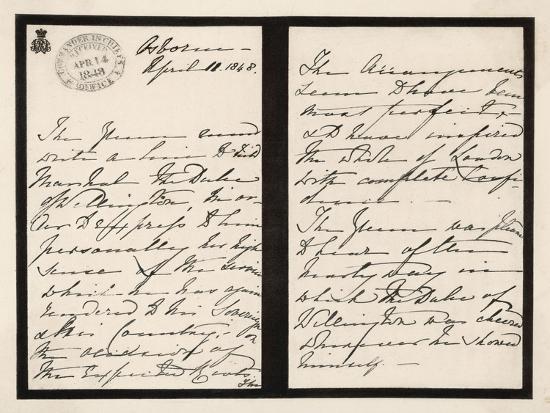 COMMANDER IN CHIEF'S
RECEIVED
APR 14
1848
OFFICE
Osborne -
April 11. 1848.
The Queen must
write a line to Field
Marshal The Duke
of Wellington, in or-
der to express to him
personally her high
sense of the service
which he has again
rendered to his Sovereign
& this Country, on
the occasion of
the expected Riots.
The
The Arrangements
seem to have been
most perfect, &
to have inspired
the whole of London
with complete Confi-
dence. -
The Queen was pleased
to hear of the
manner in
which the Duke of
Wellington was cheered
whenever he showed
himself. -